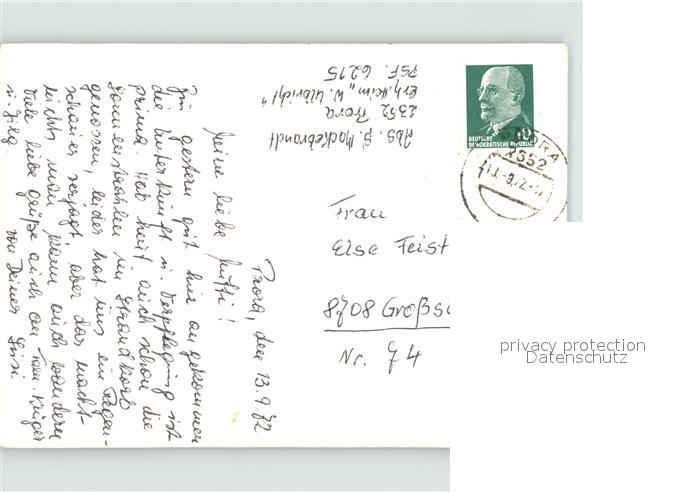 Prora, den 13.9.72
Meine liebe Mutti!
Bin gestern gut hier angekommen
die Unterkunft u. Verpflegung ist
prima. Hab heut auch schon die
Sonnenstrahlen im Strandkorb
genossen, leider hat uns ein Regen-
schauer verjagt, aber das macht
nichts man kann auch wandern
Viele liebe Grüße auch an Fam. Krüger
u. Hilg.
von Deiner Susi
Abs. S. Mackebrandt
2352 Prora
Erh. Heim „W. Ulbricht"
PSF. 6215
10
DEUTSCHE
DEMOKRATISCHE REPUBLIK
PRORA
2352
13.-9.72
Frau
Else Feist
8708 Großsc
Nr. 74
privacy protection
Datenschutz